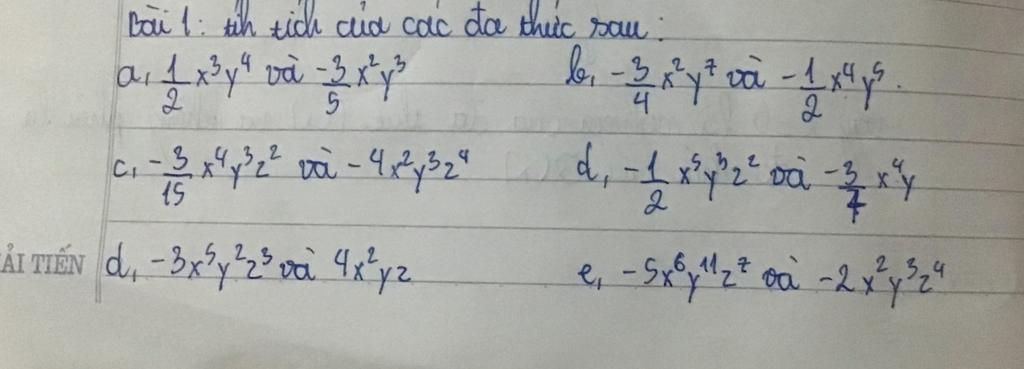 Bài 1: tính tích của các đa thức sau:
a, 1/2 x³y⁴ và -3/5 x²y³ b, -3/4 x²y⁷ và -1/2 x⁴y⁵.
c, -3/15 x⁴y³z² và -4x²y³z⁴ d, -1/2 x⁵y³z² và -3/7 x⁴y
ẢI TIẾN d, -3x⁵y²z³ và 4x²yz e, -5x⁶y¹¹z⁷ và -2x²y³z⁴